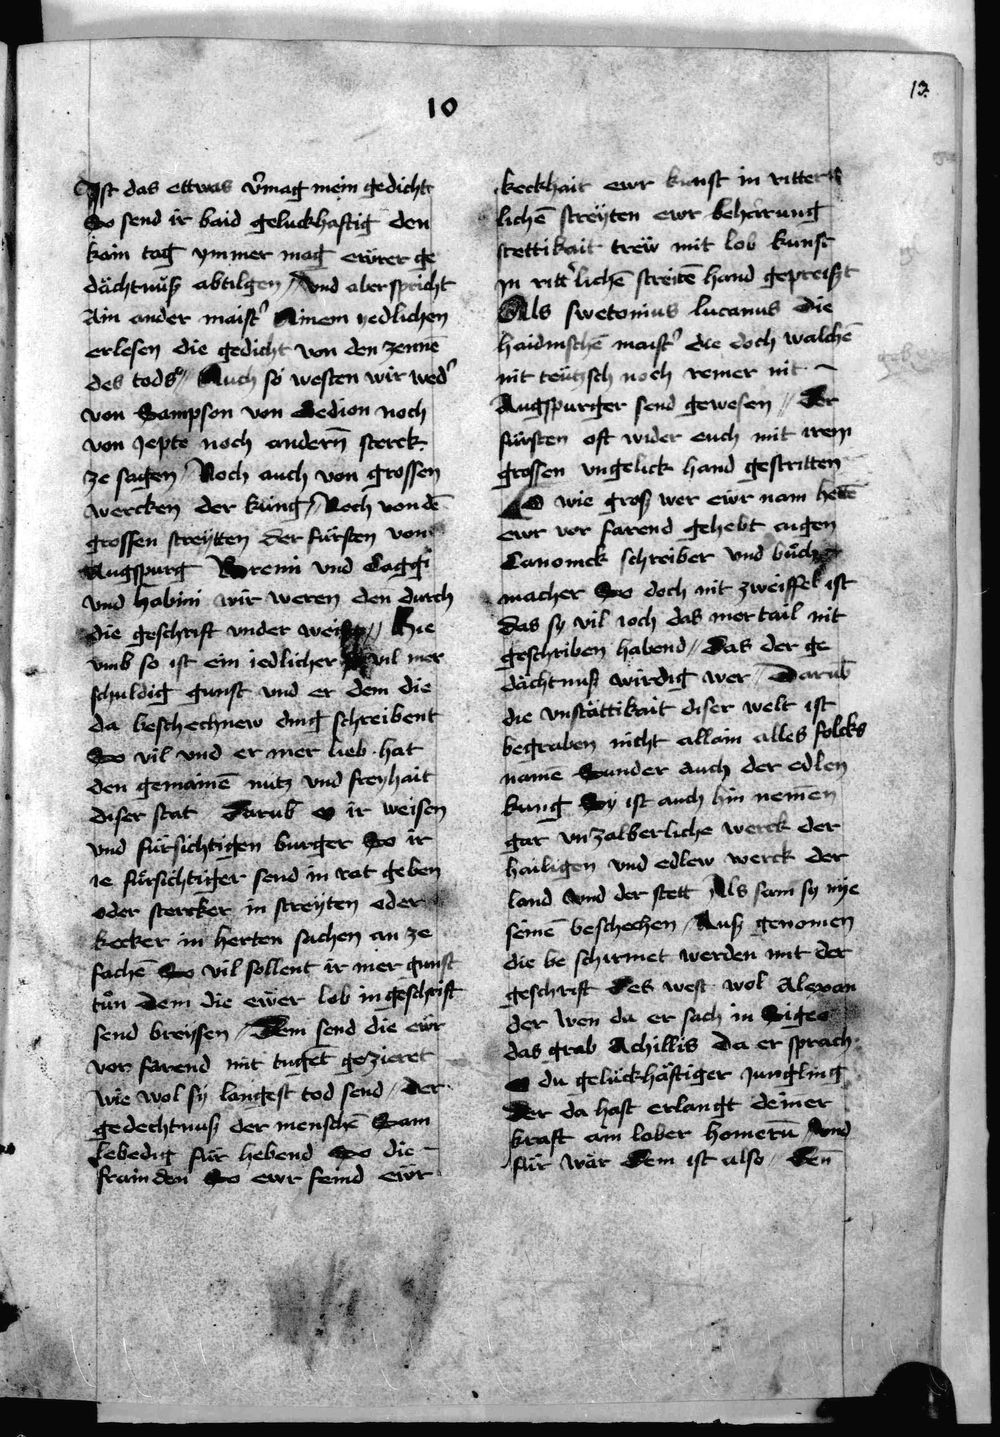 10
13
Ist das ettwas v̉mag mein gedicht
So send ir baid geluckhaftig den
kain tag ymmer mag ewrer ge
dächtnüß abtilgen // Vnd aber spricht
Ain ander maist̉ Ainem yedlichen
erlesen die gedicht von den zennē
des tods // Auch so westen wir wed̉
von Sampson von Gedion noch
von Jepte noch andern̄ sterck
ze sagen / Noch auch von grossen
wercken der küng / Noch von dē
grossen streytten der fürsten von
Augspurg Brenni vnd Caggi
vnd habini wir weren den durch
die geschrift vnder weist // Hie
vmb so ist ein iedlicher vil mer
schuldig gunst vnd er dem die
da beschechnew ding schreibent
So vil vnd er mer lieb hat
den gemainē nutz vnd freyhait
diser stat Darub̄ O ir weisen
vnd fürsichtigen burger So ir
ie fürsichtiger send in rat geben
oder stercker in streyten oder
kecker in herten sachen an ze
fachē So vil sollent ir mer gunst
tůn dem die ewer lob in geschrift
send breysen / Dem send die ewr
vor farend mit tuget gezieret
wie wol sy langest tod send / der
gedechtnuß der menschē Sam
lebedig für hebend So die
frainden So ewr feind ewr
keckhait ewr kunst in ritter
lichē streyten ewr beharung
stettikait trew mit lob kunst
in ritt̉lichē streitē hand gepreißt
Als swetonius lucanus die
haidnischē maist̉ die doch walchē
nit teützsch noch remer nit
Augspurger send gewesen // Der
fürsten oft wider euch mit irem
grossen vngelick hand gestritten
O wie groß wer ewr nam hettē
ewr vor farend gehebt aigen
Canonick schreiber vnd bůch
macher So doch nit zweiffel ist
das sy vil ioch das mertail nit
geschriben habend / Das der ge
dächtnuß wirdig wer / Darub̄
die vnstättikait diser welt ist
begraben nicht allain alles folcks
namē Sunder auch der edlen
kung Sy ist auch hin nemen
gar vnzalberliche werck der
hailigen vnd edlew werck der
land vnd der stett Als sam sy nye
seinē beschechen / Auß genomen
die be schirmet werden mit der
geschrift Des west wol Alexan
der wen da er sach in Sigeo
das grab Achillis da er sprach
O du gelückhäftiger Jungling
Der da hast erlangt deiner
kraft am lober homerū Vnd
für wär Dem ist also / Den̄